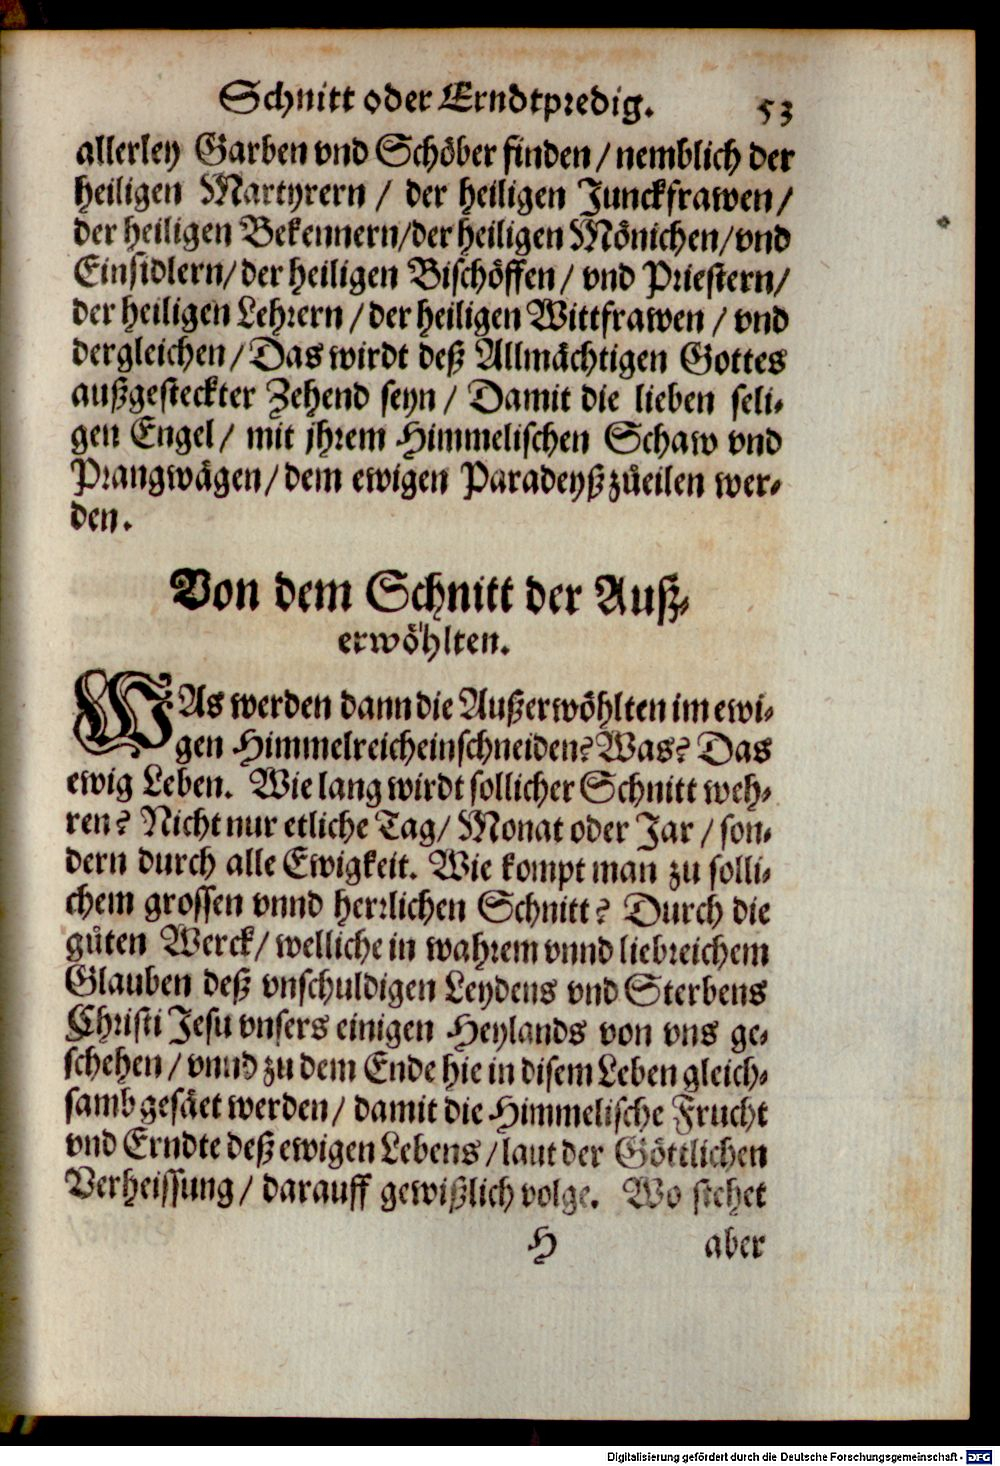 Schnitt oder Erndtpredig. 53
allerley Garben vnd Schöber finden / nemblich der
heiligen Martyrern / der heiligen Junckfrawen /
der heiligen Bekennern / der heiligen Mönichen / vnd
Einsidlern / der heiligen Bischöffen / vnd Priestern /
der heiligen Lehrern / der heiligen Wittfrawen / vnd
dergleichen / Das wirdt deß Allmächtigen Gottes
außgesteckter Zehend seyn / Damit die lieben seli-
gen Engel / mit jhrem Himmelischen Schaw vnd
Prangwägen / dem ewigen Paradeyß zůeilen wer-
den.
Von dem Schnitt der Auß-
erwöhlten.
WAs werden dann die Außerwöhlten im ewi-
gen Himmelreich einschneiden? Was? Das
ewig Leben. Wie lang wirdt sollicher Schnitt weh-
ren? Nicht nur etliche Tag / Monat oder Jar / son-
dern durch alle Ewigkeit. Wie kompt man zu solli-
chem grossen vnnd herrlichen Schnitt? Durch die
gůten Werck / welliche in wahrem vnnd liebreichem
Glauben deß vnschuldigen Leydens vnd Sterbens
Christi Jesu vnsers einigen Heylands von vns ge-
schehen / vnnd zu dem Ende hie in disem Leben gleich-
samb gesäet werden / damit die Himmelische Frucht
vnd Erndte deß ewigen Lebens / laut der Göttlichen
Verheissung / darauff gewißlich volge. Wo stehet
H aber
Digitalisierung gefördert durch die Deutsche Forschungsgemeinschaft - DFG